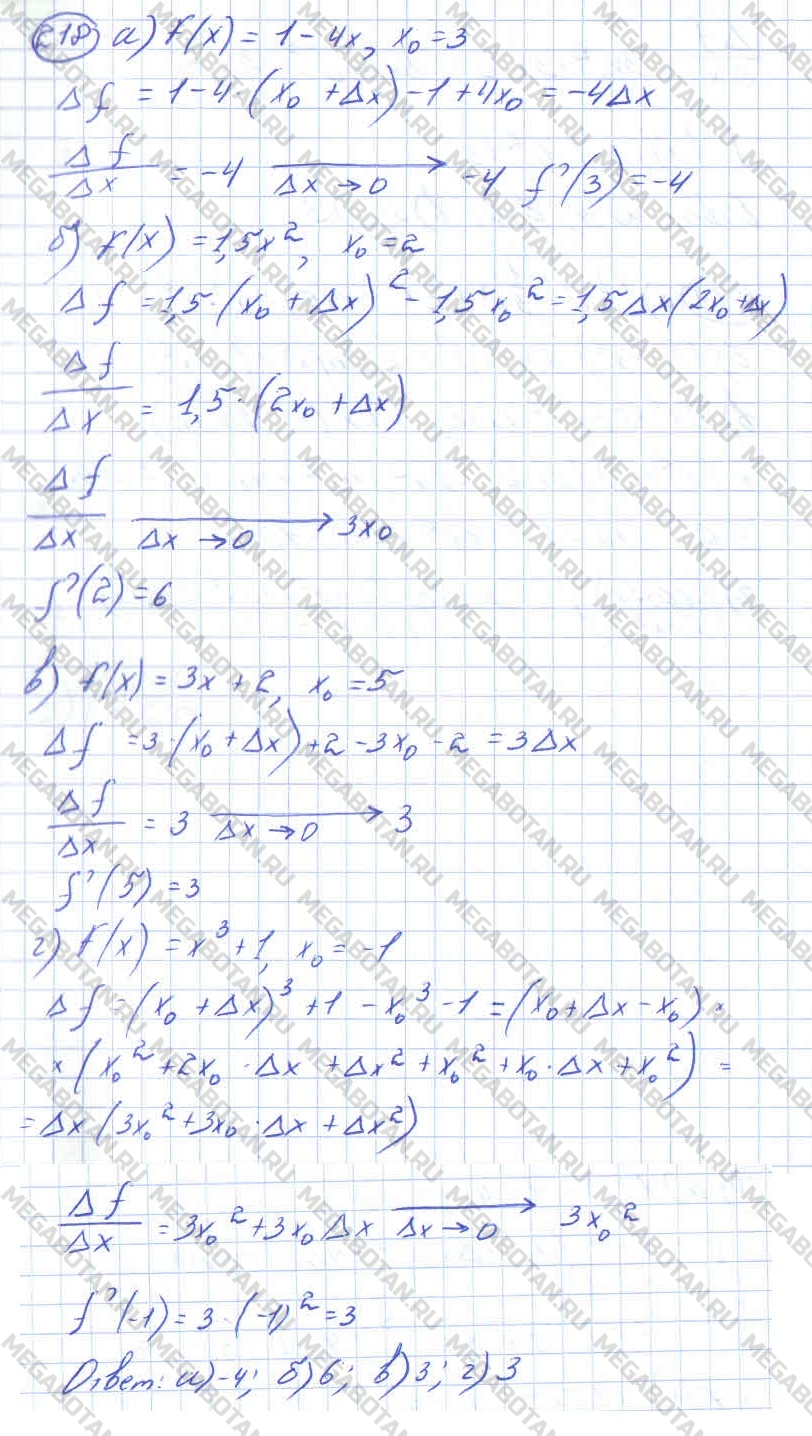 218 а) f(x) = 1 - 4x, x₀ = 3
Δf = 1 - 4·(x₀ + Δx) - 1 + 4x₀ = -4Δx
Δf/Δx = -4 →(Δx→0) -4 f'(3) = -4
б) f(x) = 1,5x², x₀ = 2
Δf = 1,5·(x₀ + Δx)² - 1,5x₀² = 1,5Δx(2x₀ + Δx)
Δf/Δx = 1,5·(2x₀ + Δx)
Δf/Δx →(Δx→0) 3x₀
f'(2) = 6
в) f(x) = 3x + 2, x₀ = 5
Δf = 3·(x₀ + Δx) + 2 - 3x₀ - 2 = 3Δx
Δf/Δx = 3 →(Δx→0) 3
f'(5) = 3
г) f(x) = x³ + 1, x₀ = -1
Δf = (x₀ + Δx)³ + 1 - x₀³ - 1 = (x₀ + Δx - x₀)×
×(x₀² + 2x₀·Δx + Δx² + x₀² + x₀·Δx + x₀²) =
= Δx(3x₀² + 3x₀·Δx + Δx²)
Δf/Δx = 3x₀² + 3x₀Δx →(Δx→0) 3x₀²
f'(-1) = 3·(-1)² = 3
Ответ: а) -4; б) 6; в) 3; г) 3
MEGABOTAN.RU